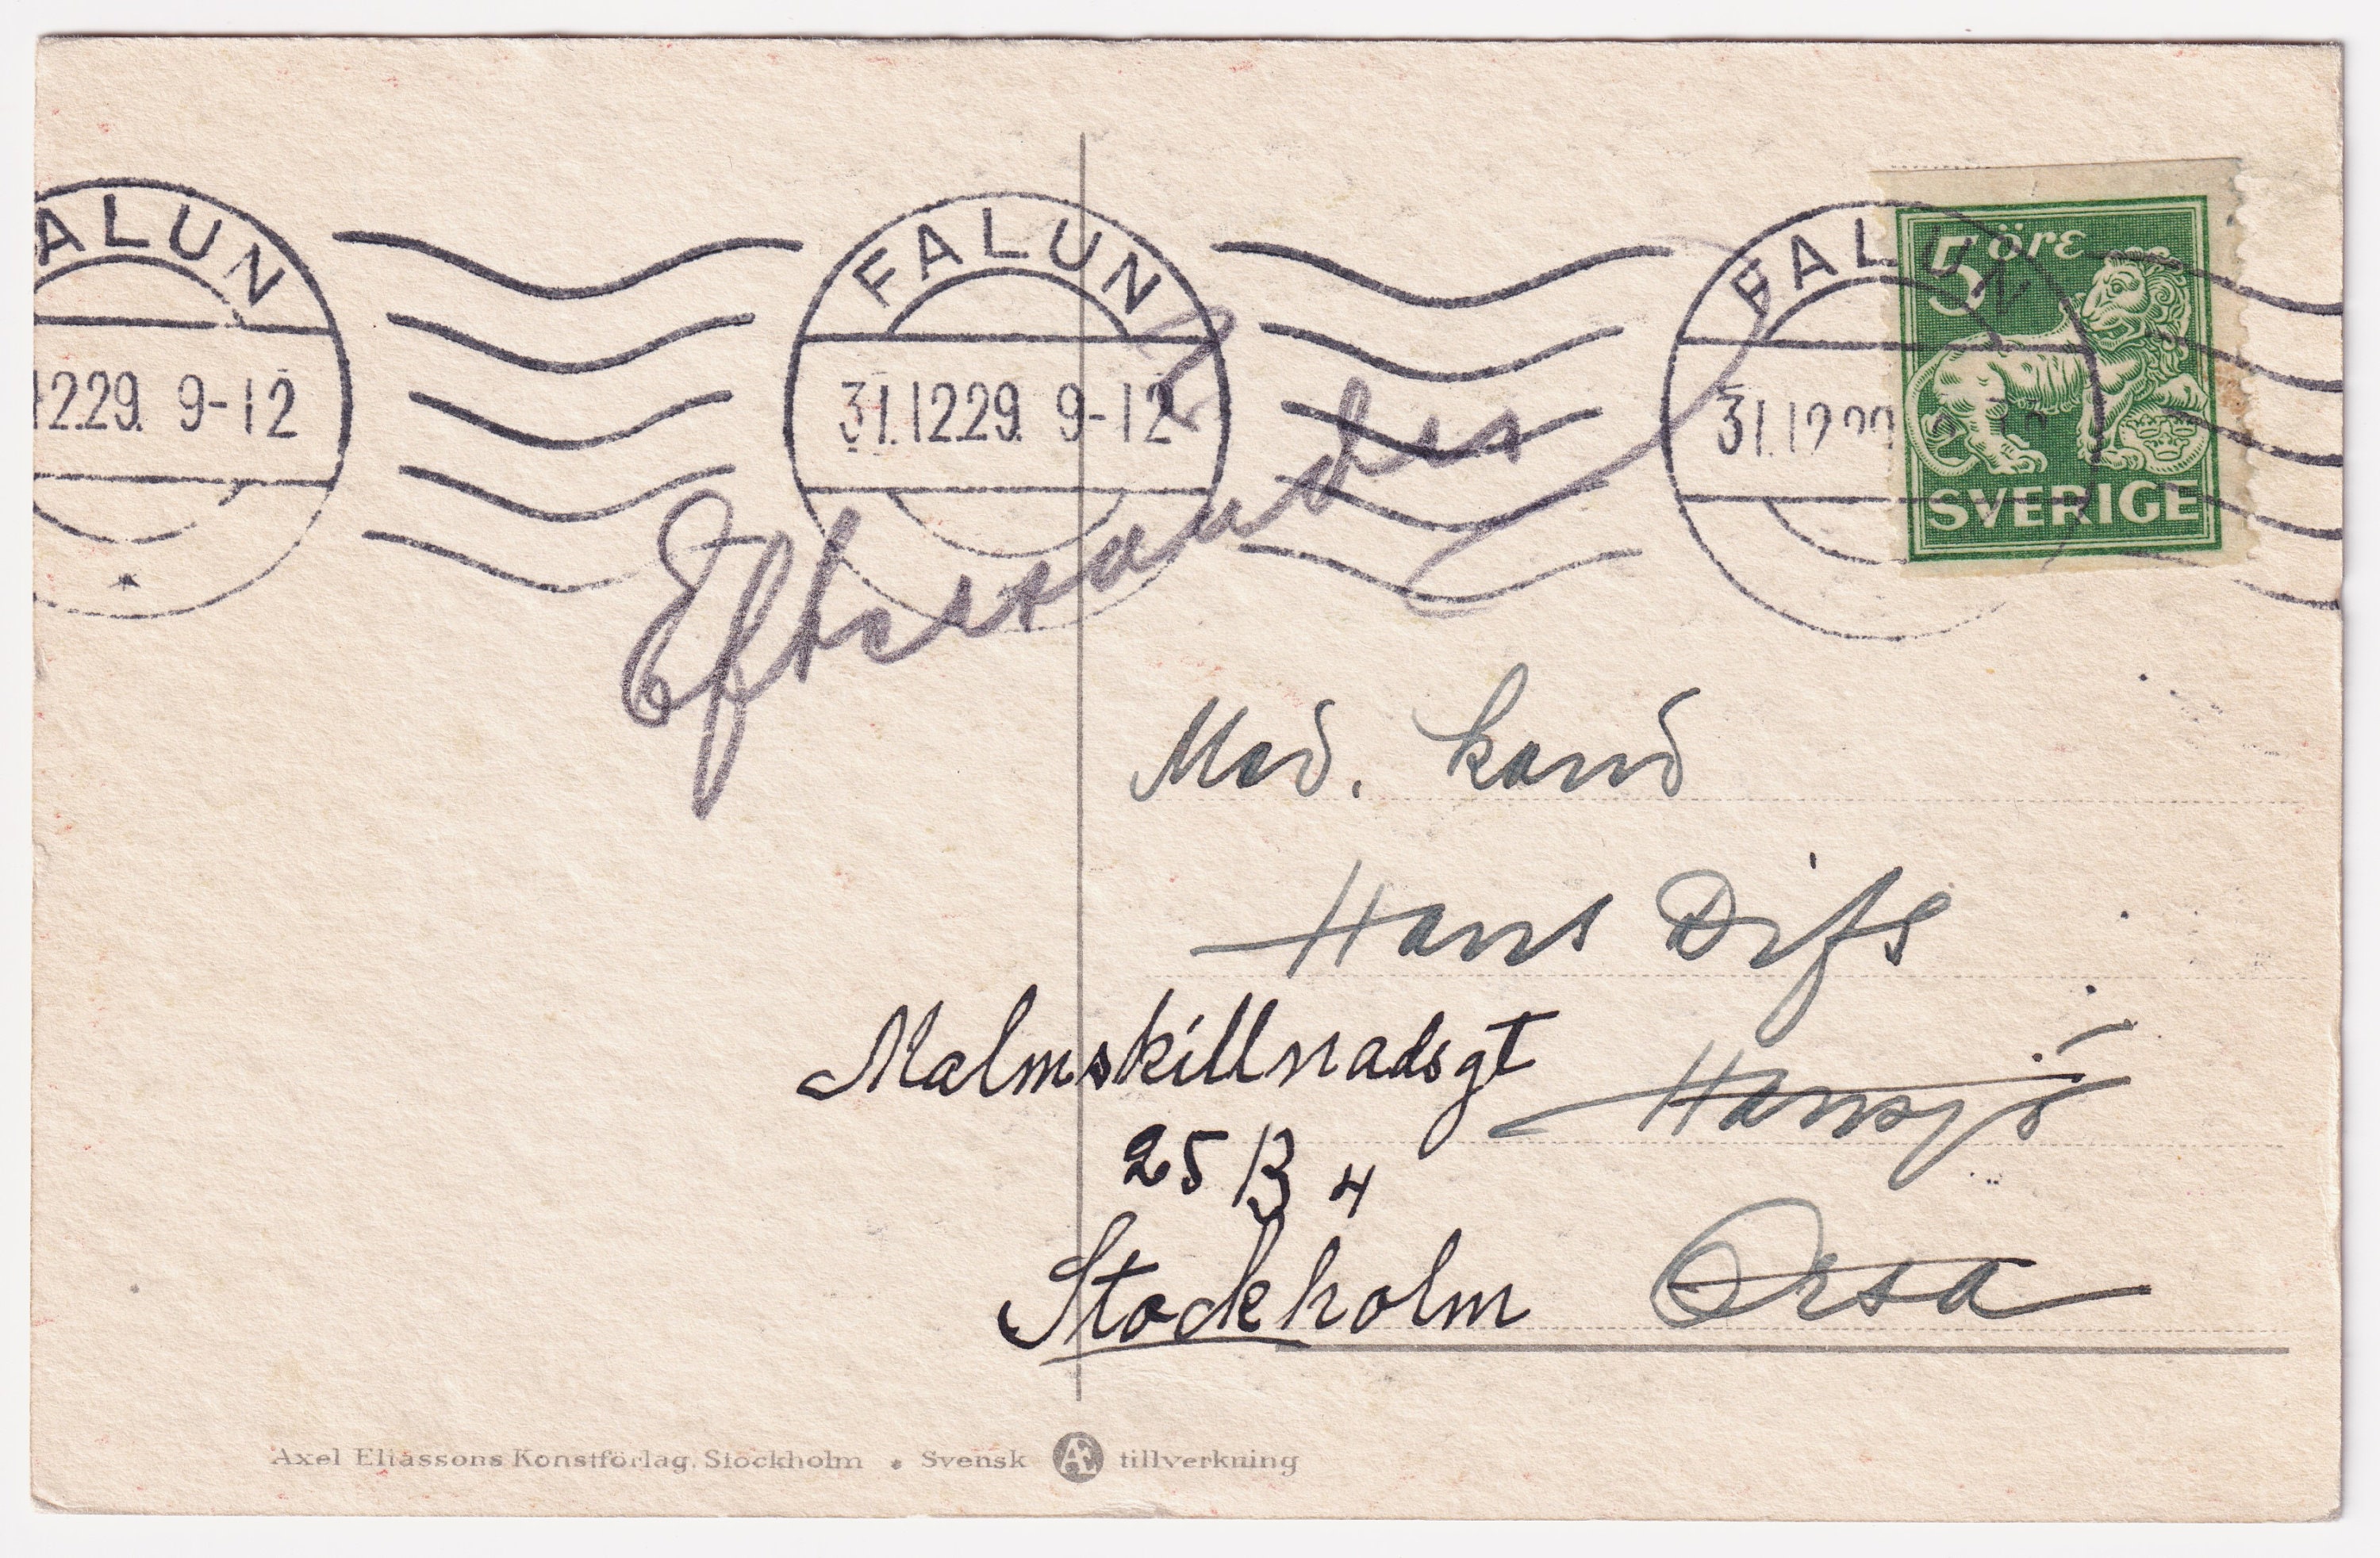 ALUN
12.29. 9-12
FALUN
31.12.29. 9-12
FALUN
31.12
5 öre
SVERIGE
Eftersändes
Med. kand
Hans Difs
Malmskillnadsgt
Hansjö
25 B 4
Stockholm
Orsa
Axel Eliassons Konstförlag, Stockholm • Svensk Æ tillverkning